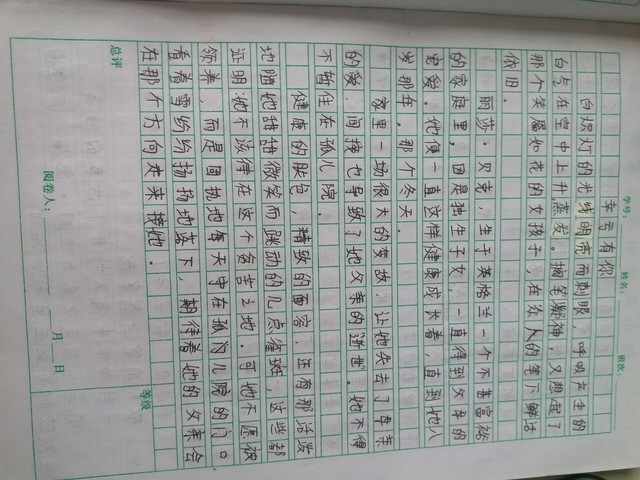 学号: 姓名: 班次:
幸亏有你
白炽灯的光线明亮而刺眼，呼吸产生的
白气在空中上升，蒸发。搁笔凝神，又想起了
那个笑靥如花的女孩子，在众人的笔下鲜活
依旧。
丽莎·贝克，生于英格兰一个不甚富裕
的家庭里，因是独生子女，一直得到父母的
宠爱。她便一直这样健康成长着，直到她八
岁那年，那个冬天。
家里一场很大的变故，让她失去了母亲
的爱，间接也导致了她父亲的逝世。她不得
不暂住在孤儿院。
健康的肤色，精致的面容，还有那活泼
地随她甜甜微笑而跳动的几点雀斑，这些都
证明她不该待在这个穷苦之地。可她不愿被
领养，而是固执地每天守在孤儿院的门口
看着雪纷纷扬扬地落下，期待着她的父亲会
在那个方向走来接她。
总评
等级
阅卷人: 月 日